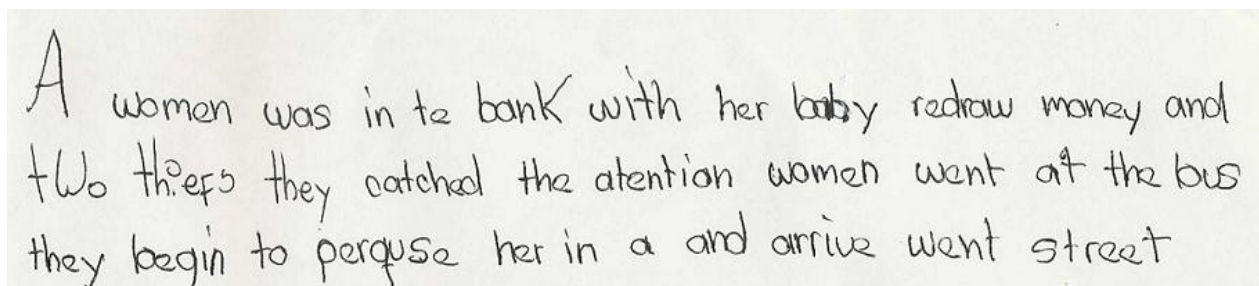 A women was in te bank with her baby redraw money and
two thiefs they catched the atention women went at the bus
they begin to perquse her in a and arrive went street